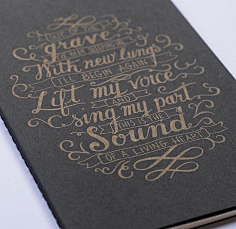 OUT OF THE
grave
With new lungs
I'LL BEGIN AGAIN
Lift my voice
AND
sing my part
THIS IS THE
Sound
OF A LIVING HEART